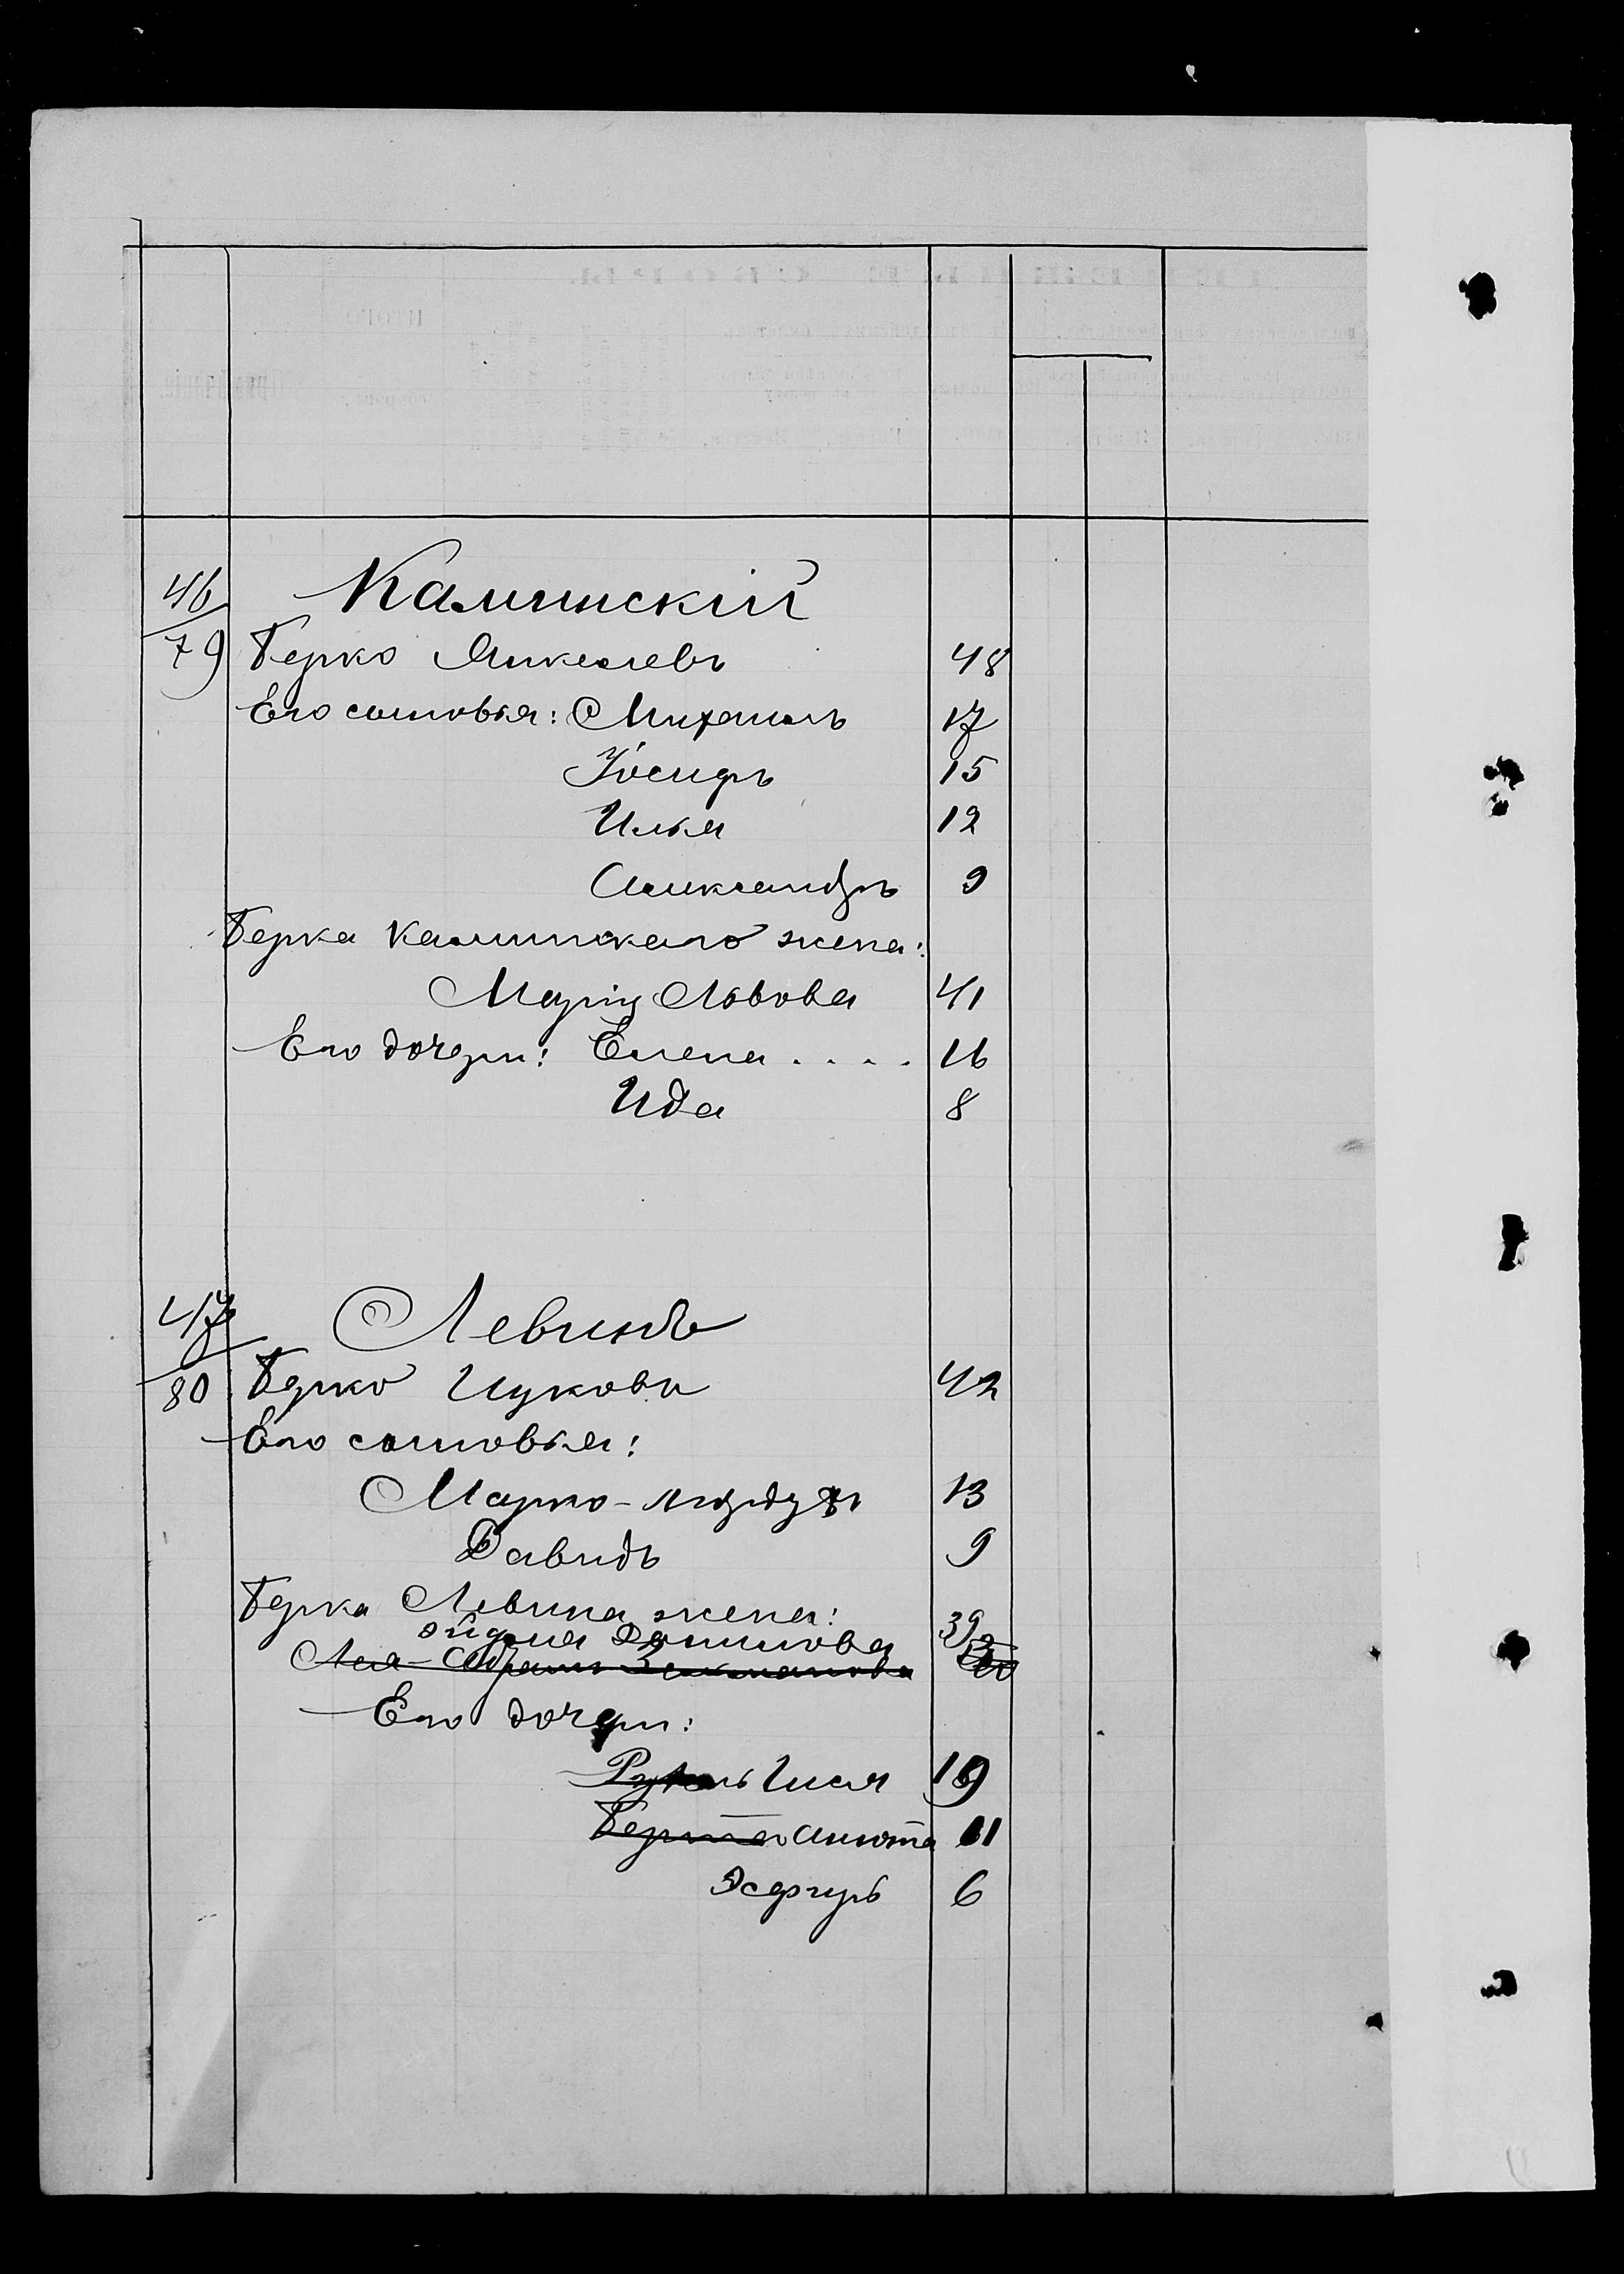 46 Калинскій
79 Берко Янкелевъ 48
Его сыновья: Михаилъ 17
Іосифъ 15
Илья 12
Александръ 9
Берка Калинскаго жена:
Марія Львова 41
Его дочери: Елена . . . . 16
Ида 8
47 Левинъ
80 Берко Ицковъ 42
Его сыновья:
Марко- 13
Давидъ 9
Берка Левина жена:
39
Лея-Абрамъ
Его дочери:
19
Берта Анюта 11
Эсфирь 6